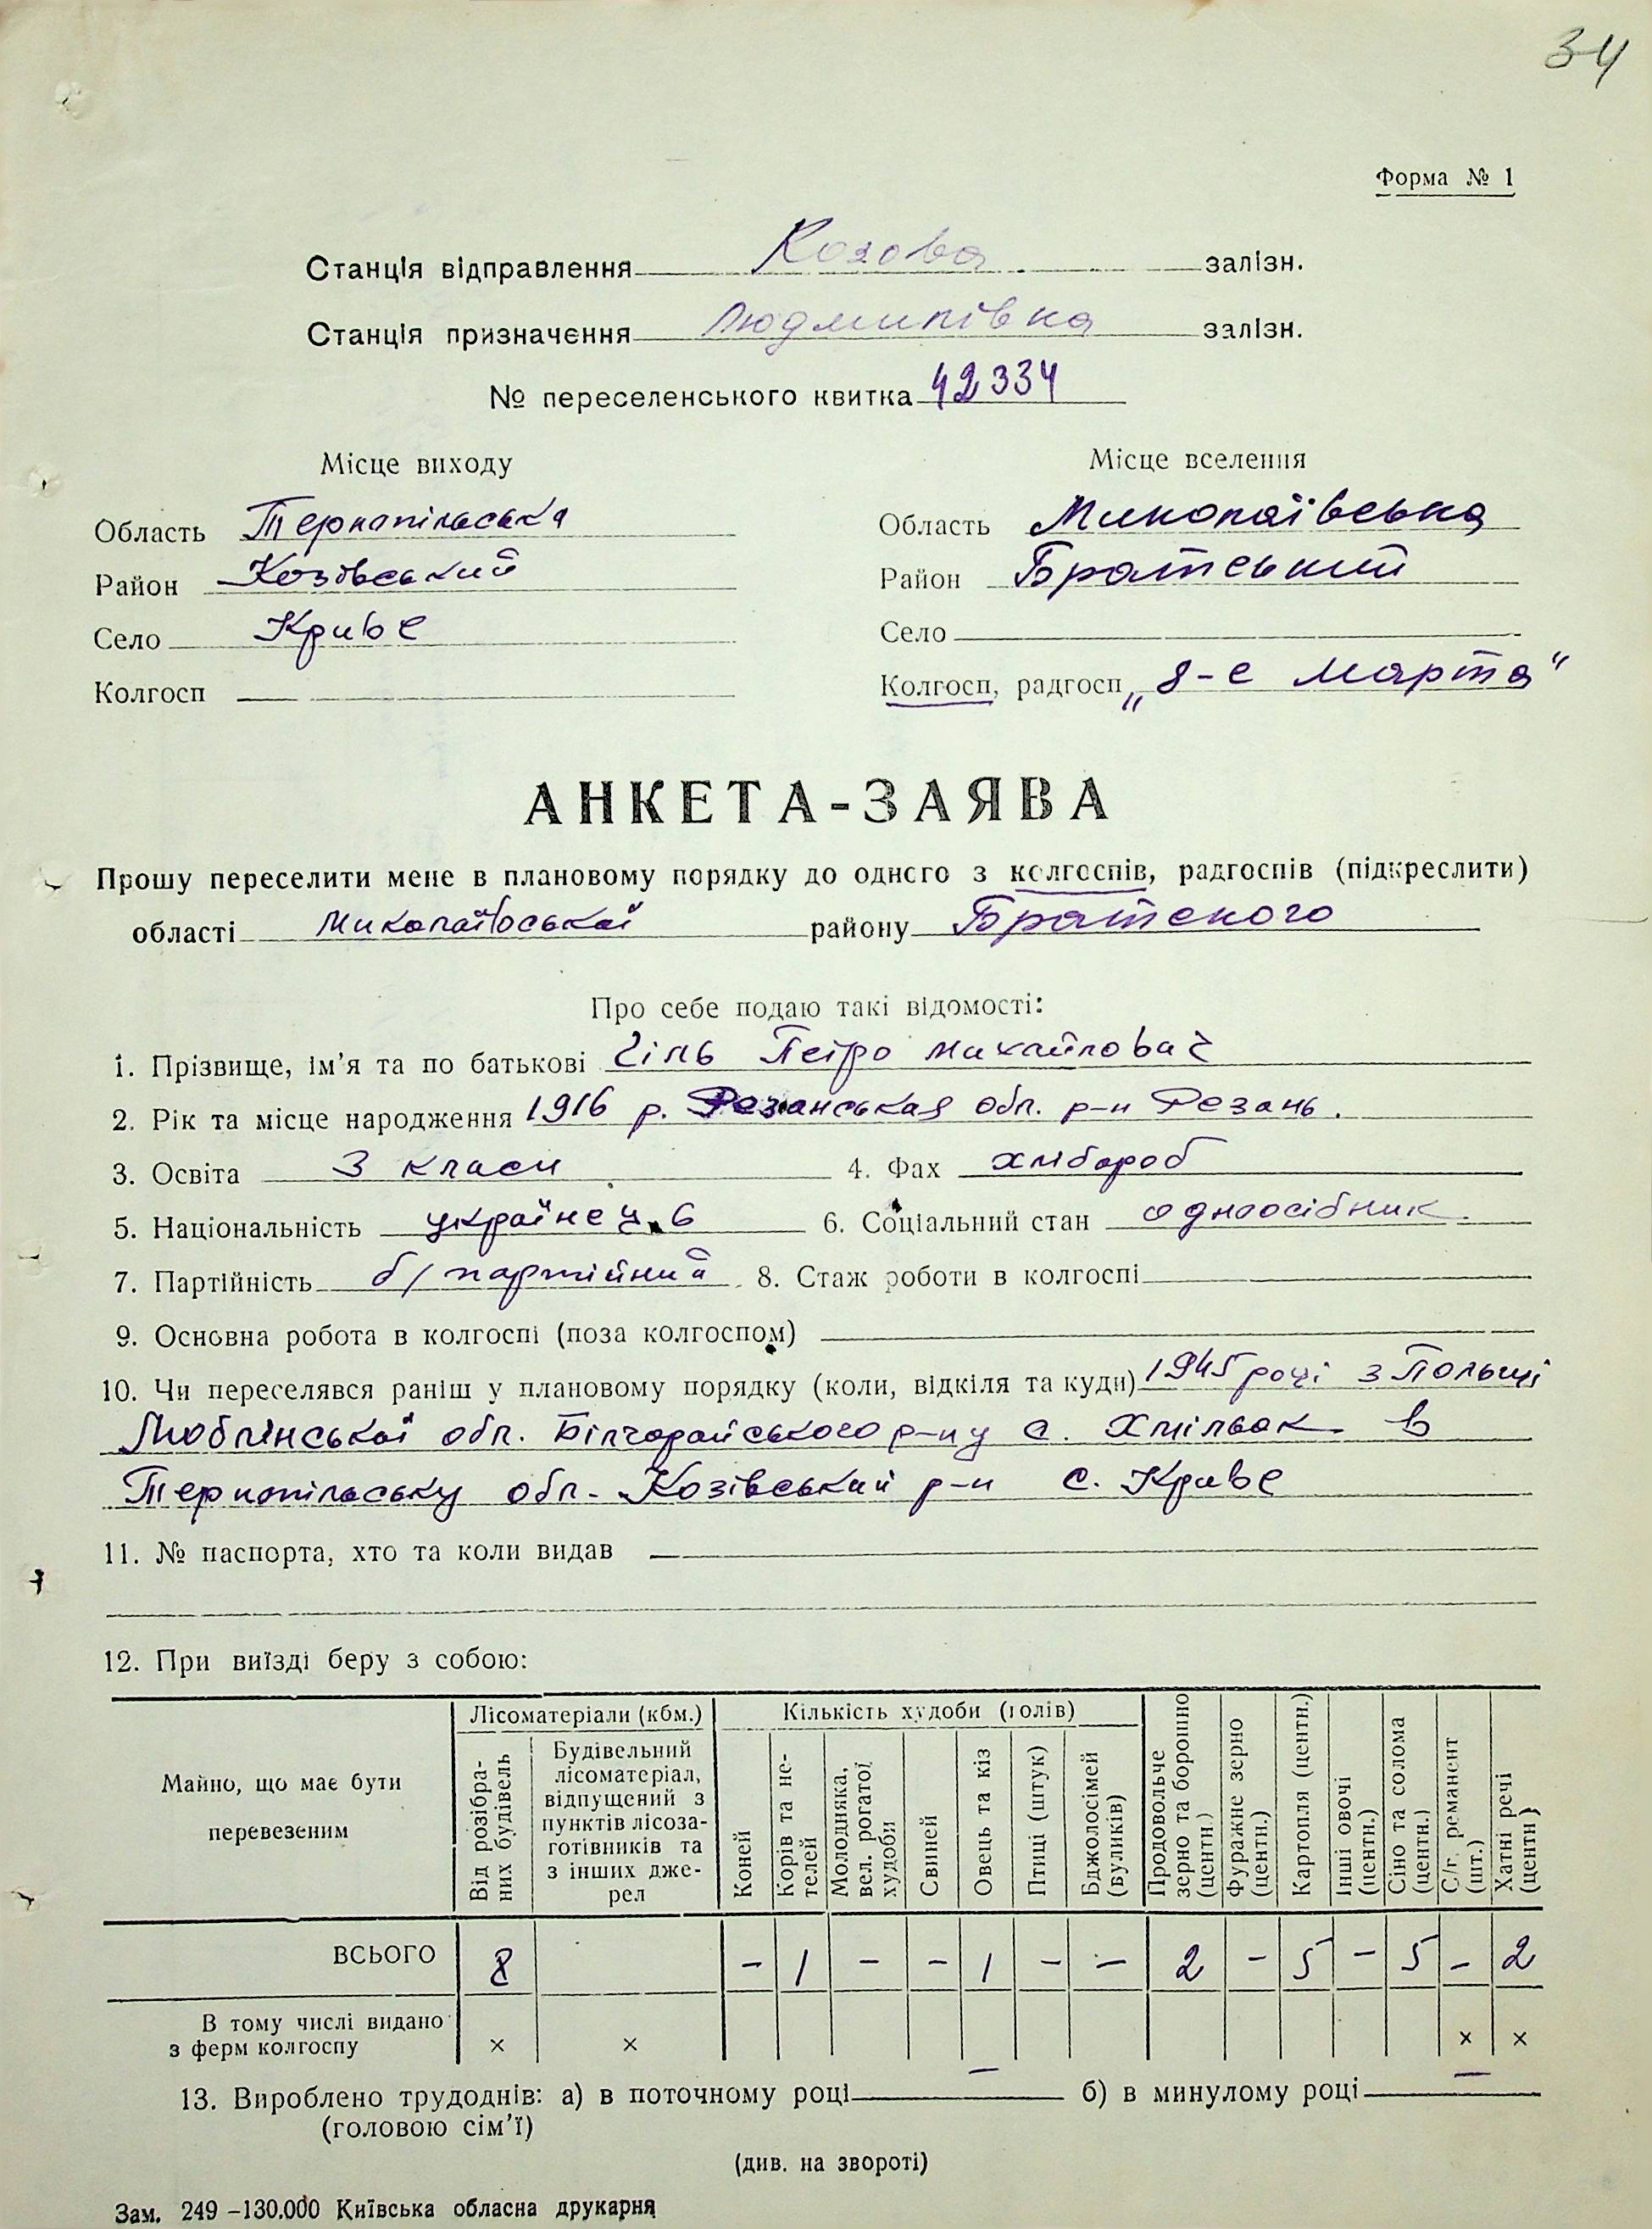 34
Форма № 1
Станція відправлення Козова залізн.
Станція призначення Людмилівка залізн.
№ переселенського квитка 42334
Місце виходу
Місце вселення
Область Тернопільська
Область Миколаївська
Район Козівський
Район Братський
Село Криве
Село
Колгосп —
Колгосп, радгосп „8-е Марта"
АНКЕТА-ЗАЯВА
Прошу переселити мене в плановому порядку до одного з колгоспів, радгоспів (підкреслити)
області Миколаївської району Братского
Про себе подаю такі відомості:
1. Прізвище, ім'я та по батькові Гіль Петро Михайлович
2. Рік та місце народження 1916 р. Резанськая обл. р-н Резань.
3. Освіта 3 класи 4. Фах хлібороб
5. Національність українець 6. Соціальний стан одноосібник.
7. Партійність б/партійний 8. Стаж роботи в колгоспі
9. Основна робота в колгоспі (поза колгоспом)
10. Чи переселявся раніш у плановому порядку (коли, відкіля та куди) 1945 році з Польщі
Люблінської обл. Білгорайського р-ну с. Хмільок в
Тернопільську обл. Козівський р-н с. Криве
11. № паспорта, хто та коли видав
12. При виїзді беру з собою:
Майно, що має бути перевезеним
Лісоматеріали (кбм.)
Кількість худоби (голів)
Від розібраних будівель
Будівельний лісоматеріал, відпущений з пунктів лісозаготівників та з інших джерел
Коней
Корів та нетелей
Молодняка, вел. рогатої худоби
Свиней
Овець та кіз
Птиці (штук)
Бджолосімей (вуликів)
Продовольче зерно та борошно (центн.)
Фуражне зерно (центн.)
Картопля (центн.)
Інші овочі (центн.)
Сіно та солома (центн.)
С/г. реманент (шт.)
Хатні речі (центн)
ВСЬОГО 8 – 1 – – 1 – – 2 – 5 – 5 – 2
В тому числі видано з ферм колгоспу × × × ×
13. Вироблено трудоднів: а) в поточному році — б) в минулому році —
(головою сім'ї)
(див. на звороті)
Зам. 249 –130.000 Київська обласна друкарня